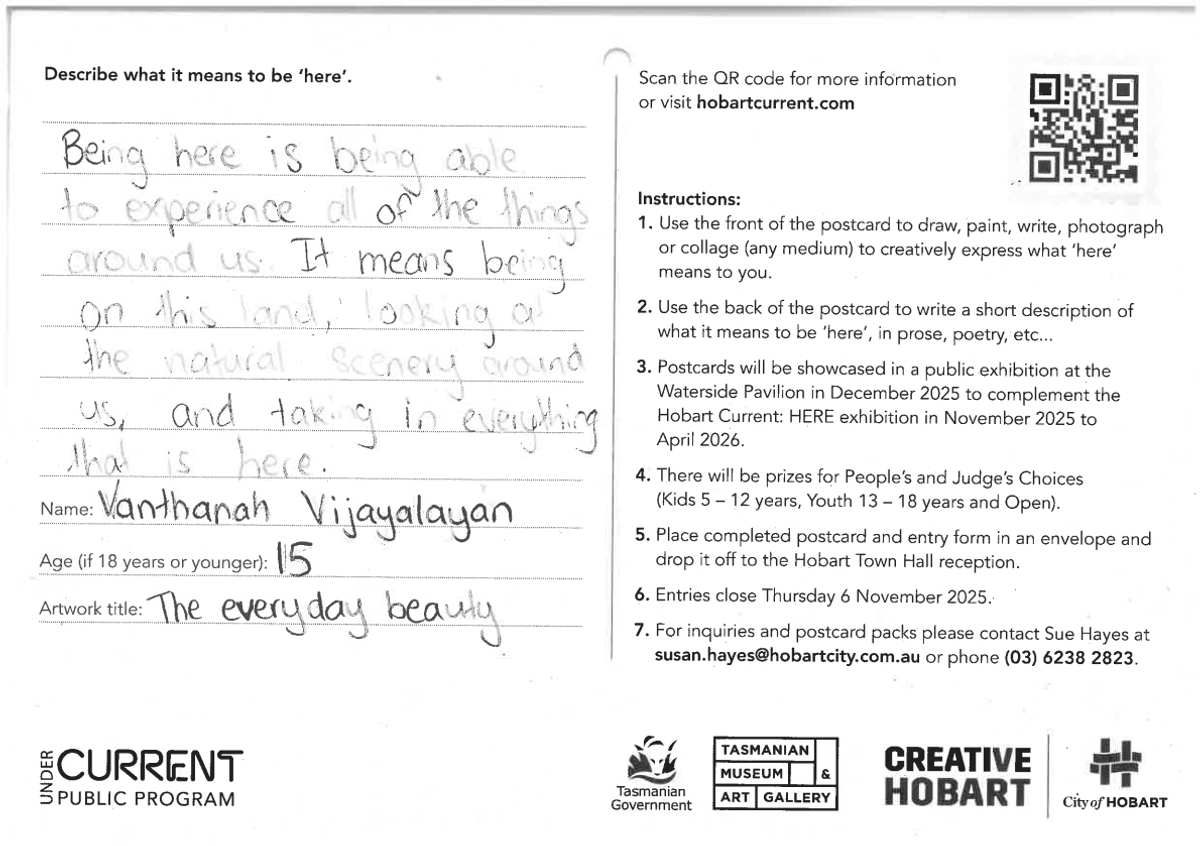 Describe what it means to be ‘here’.
Being here is being able
to experience all of the things
around us. It means being
on this land, looking at
the natural scenery around
us, and taking in everything
that is here.
Name: Vanthanah Vijayalayan
Age (if 18 years or younger): 15
Artwork title: The everyday beauty
UNDER
CURRENT
PUBLIC PROGRAM
Scan the QR code for more information
or visit hobartcurrent.com
Instructions:
1. Use the front of the postcard to draw, paint, write, photograph
or collage (any medium) to creatively express what ‘here’
means to you.
2. Use the back of the postcard to write a short description of
what it means to be ‘here’, in prose, poetry, etc...
3. Postcards will be showcased in a public exhibition at the
Waterside Pavilion in December 2025 to complement the
Hobart Current: HERE exhibition in November 2025 to
April 2026.
4. There will be prizes for People’s and Judge’s Choices
(Kids 5 – 12 years, Youth 13 – 18 years and Open).
5. Place completed postcard and entry form in an envelope and
drop it off to the Hobart Town Hall reception.
6. Entries close Thursday 6 November 2025.
7. For inquiries and postcard packs please contact Sue Hayes at
susan.hayes@hobartcity.com.au or phone (03) 6238 2823.
Tasmanian
Government
TASMANIAN
MUSEUM &
ART GALLERY
CREATIVE
HOBART
City of HOBART